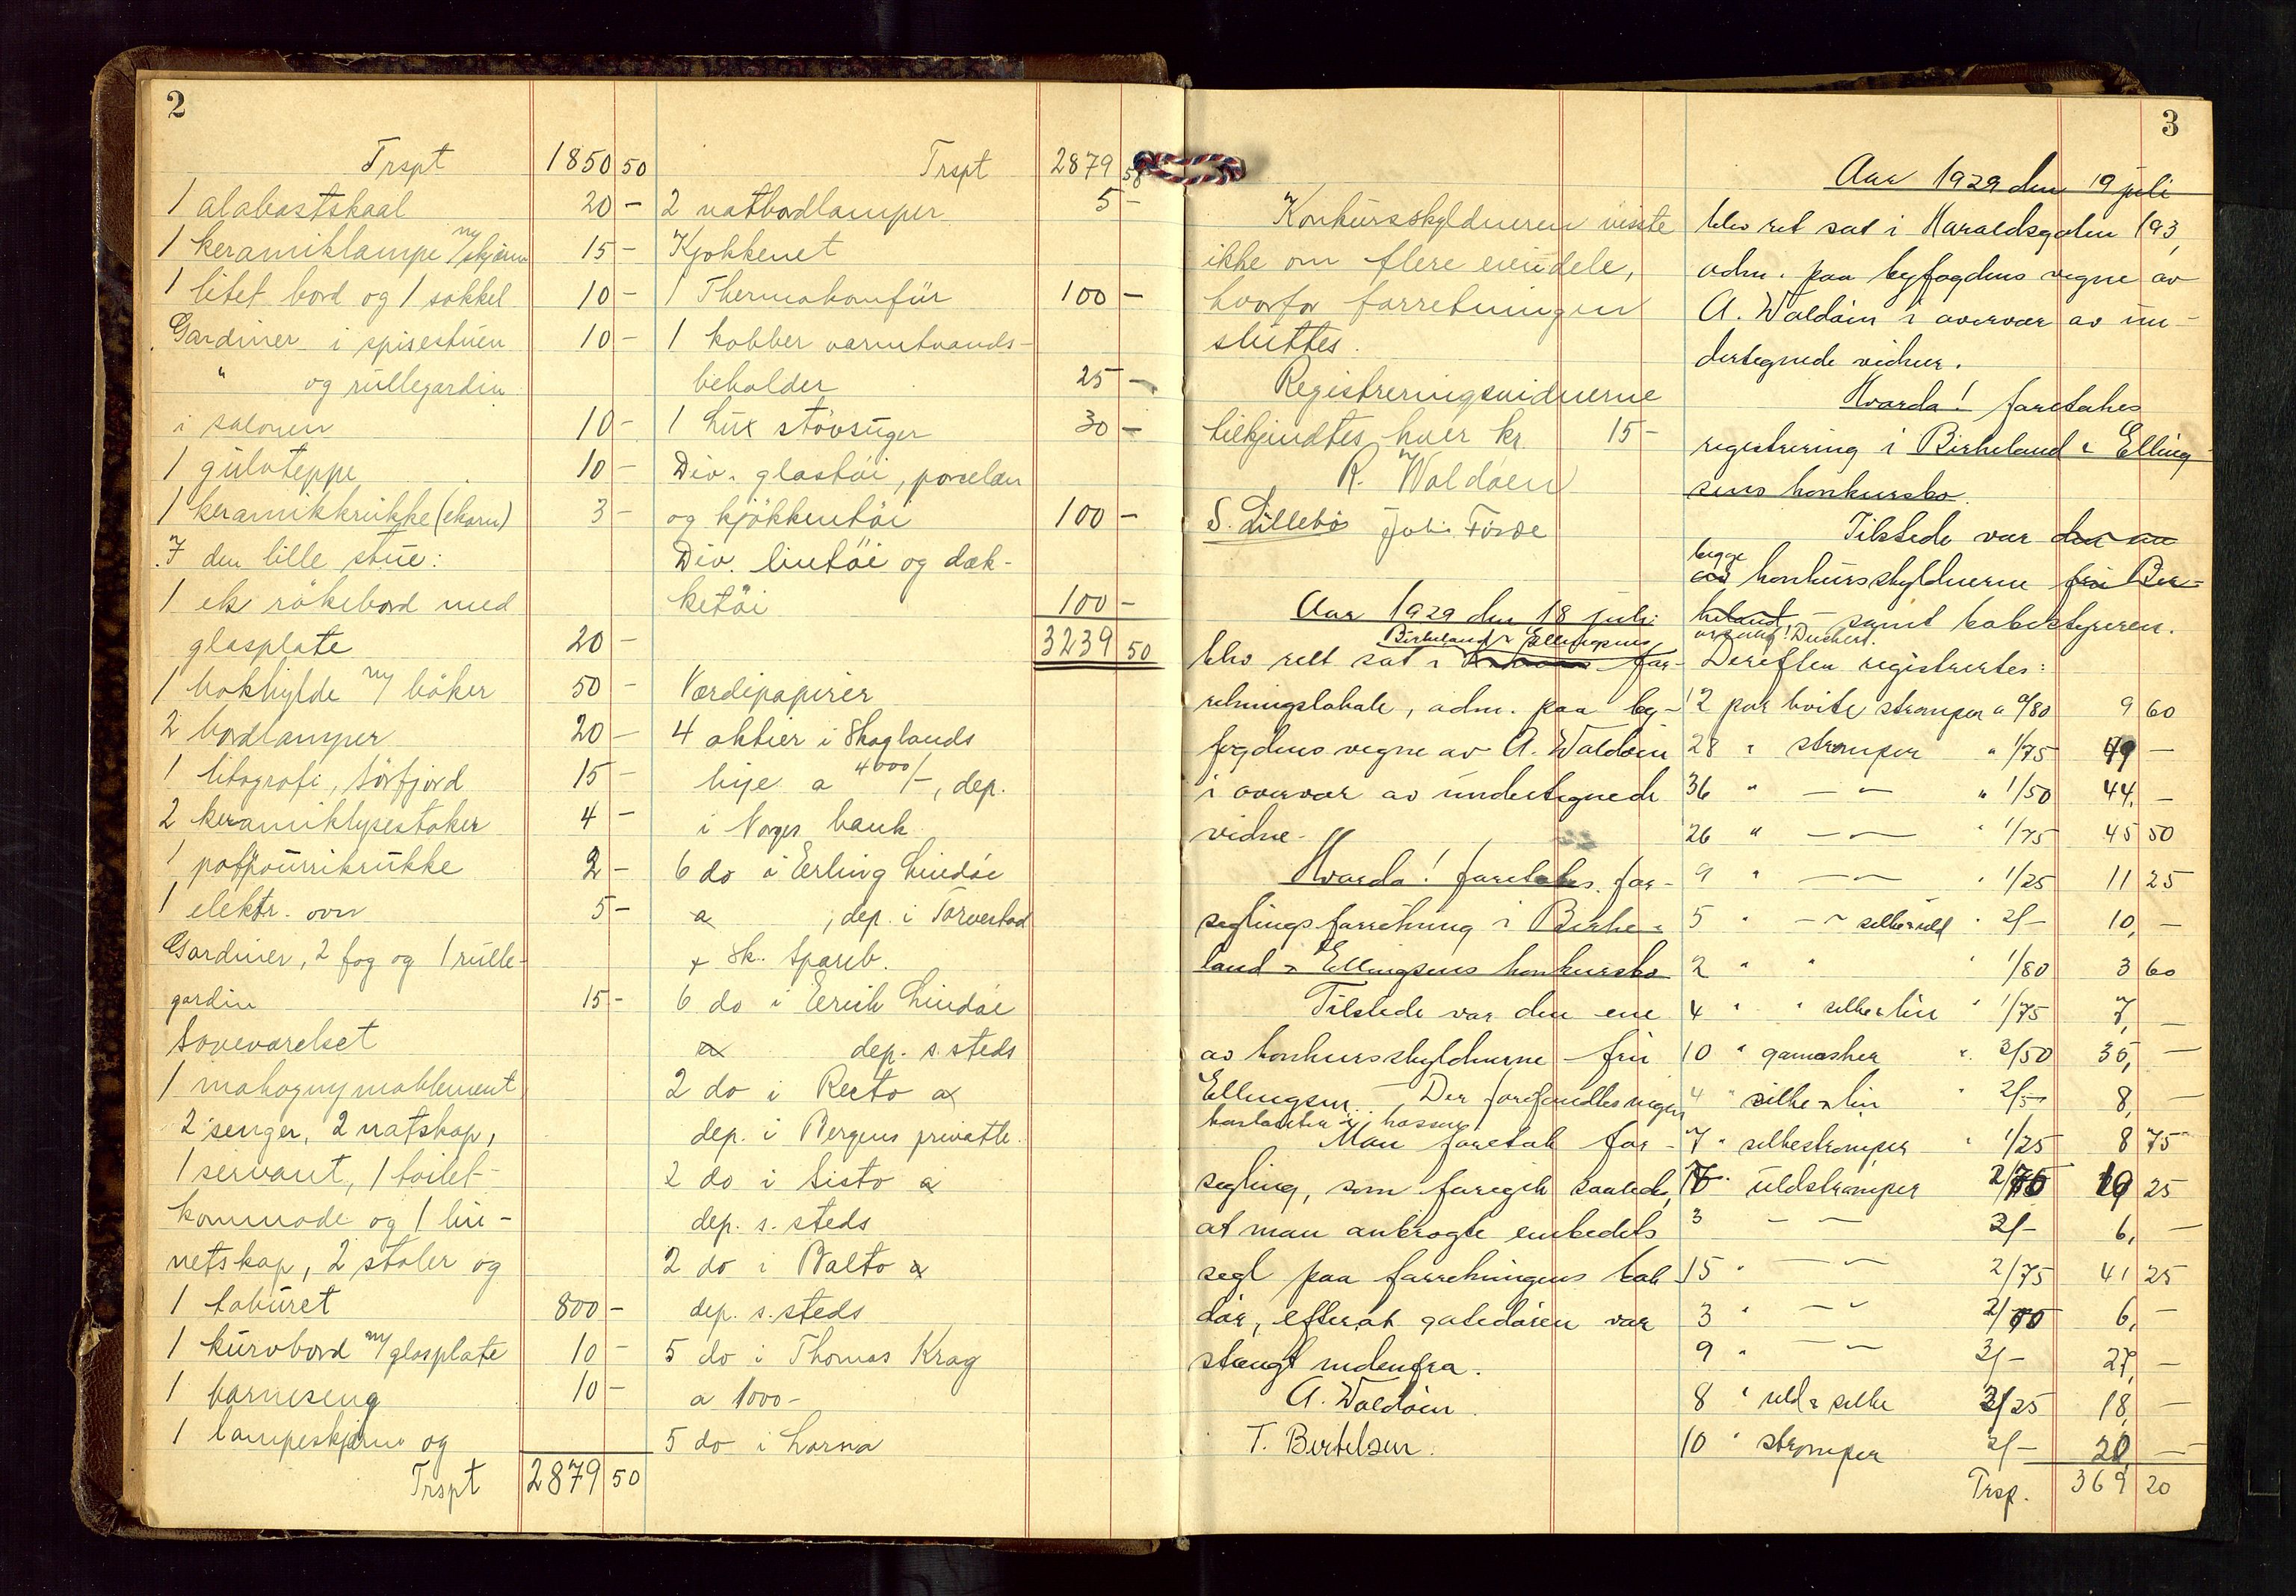 2
Trspt 1850 50
1 alabastskaal 20 -
1 keramiklampe m/skjærm 15 -
1 litet bord og 1 sokkel 10 -
Gardiner i spisestuen 10 -
" og rullegardin
i salonen 10 -
1 gulvteppe 10 -
1 keramikkrukke (ekorn) 3 -
I den lille stue:
1 ek rökebord med
glasplate 20 -
1 bokhylde m/ böker 50 -
2 bordlamper 20 -
1 litografi, Sörfjord 15 -
2 keramiklysestaker 4 -
1 potpourrikrukke 2 -
1 elektr. ovn 5 -
Gardiner, 2 fag og 1 rulle-
gardin 15 -
Soveværelset
1 mahogny moblement
2 senger, 2 natskap,
1 servant, 1 toilet-
kommode og 1 lin-
netskap, 2 stoler og
1 taburet 800 -
1 kurvbord m/ glasplate 10 -
1 barneseng 10 -
1 lampeskjærm og
Trspt 2879 50
Trspt 2879 50
2 natbordlamper 5 -
Kjøkkenet
1 Thermakomfür 100 -
1 kobber varmtvands-
beholder 25 -
1 Lux stövsuger 30 -
Div. glastöi, porcelæn
og kjökkentöi 100 -
Div. lintöi og dæk-
ketöi 100 -
3239 50
Værdipapirer
4 aktier i Skoglands
linje a 4000/-, dep.
i Norges bank
6 do i Erling Lindöe
a , dep. i Torvestad
+ Sk. Spareb.
6 do i Erich Lindöe
a dep. s. steds
2 do i Recto a
dep. i Bergens privatb.
2 do i Sisto a
dep. s. steds
2 do i Balto a
dep. s. steds
5 do i Thomas Krag
a 1000 -
5 do i Lorna
3
Konkursskyldneren visste
ikke om flere eiendele,
hvorfor forretningen
sluttes.
Registreringsvidnerne
tilkjendtes hver kr 15 -
R. Waldöen
S. Lillebö Johs. Förde
Aar 1929 den 18 juli
Birkeland & Ellingsens
blev rett sat i for-
retningslokale, adm. paa by-
fogdens vegne av A. Waldöen
i overvær av undertegnede
vidne.
Hvorda! foretokes for-
seglingsforretning i Birke-
land & Ellingsens konkursbo
Tilstede var den ene
av konkursskyldnerne - fru
Ellingsen. Der forefandtes ingen
kontanter i kassen.
Man foretok for-
segling, som foregik saaledes,
at man anbragte embedets
segl paa forretningens bak
dör, efterat gatedören var
stængt indenfra.
A. Waldöen
T. Bertelsen.
Aar 1929 den 19 juli
blev ret sat i Haraldsgaten 193,
adm. paa byfogdens vegne av
A. Waldöen i overvær av un-
dertegnede vidner.
Hvorda! foretokes
registrering i Birkeland & Elling
sens konkursbo.
Tilstede var den ene
begge
av konkursskyldnerne fru Bir-
keland - samt bobestyreren.
Derefter registrertes:
12 par hvite strömper a 0/80 9 60
28 " strömper " 1/75 49 -
36 " — " — " 1/50 44, -
26 " — " — " 1/75 45 50
9 " — " — " 1/25 11 25
5 " — " silke & uld " 2/- 10, -
2 " " " 1/80 3 60
4 " " silke & lin " 1/75 7, -
10 " gamasher " 3/50 35, -
4 " silke & lin " 2/- 8, -
7 " silkeströmper " 1/25 8 75
7 " uldströmper 2/75 19 25
3 — " — 2/- 6, -
15 " — " — 2/75 41 25
3 " — " — 2/00 6, -
9 " — 3/- 27, -
8 " uld & silke 2/25 18, -
10 " strömper 2/- 20, -
Trsp. 369 20